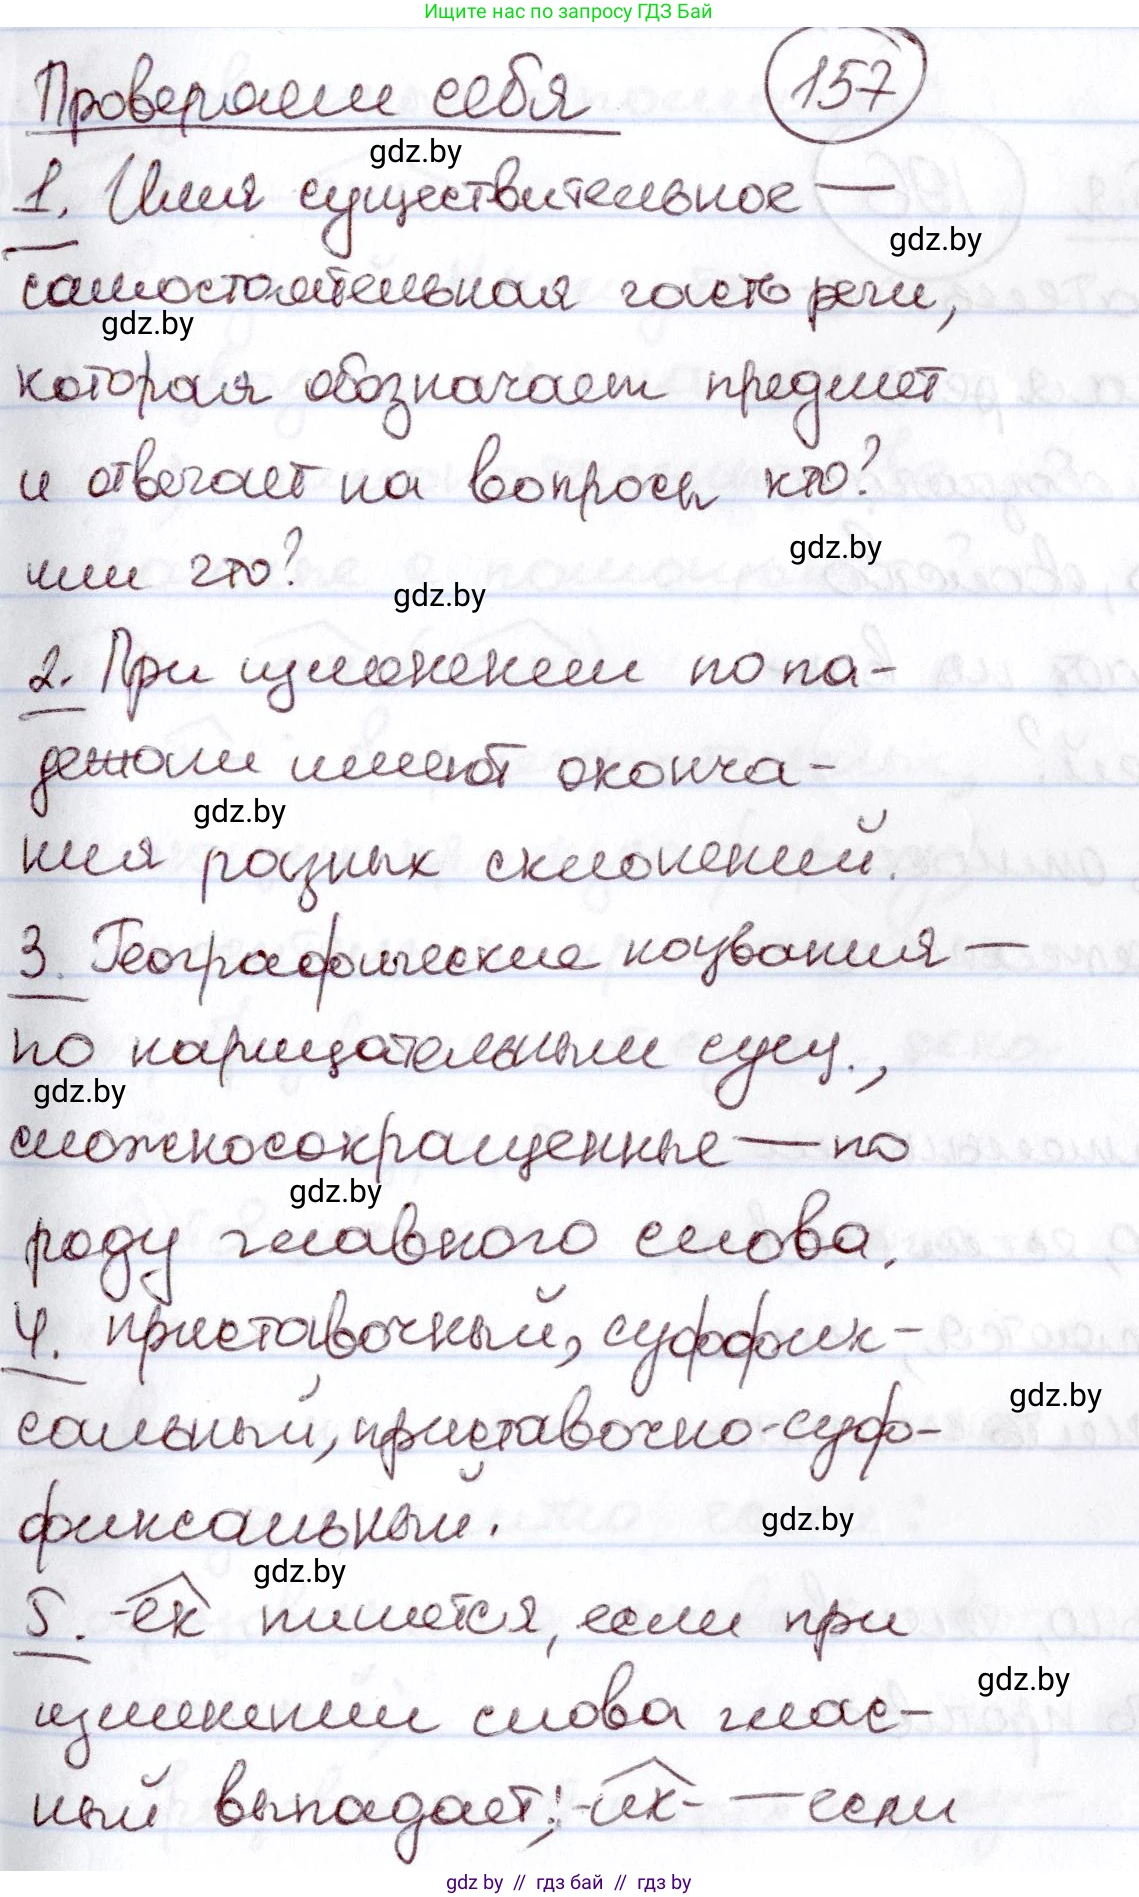 Ищите нас по запросу ГДЗ Бай
Проверяем себя 157
gdz.by
1. Имя существительное —
gdz.by
самостоятельная часть речи,
gdz.by
которая обозначает предмет
и отвечает на вопросы кто?
gdz.by
или что?
gdz.by
2. При изменении по па-
дежам имеют оконча-
gdz.by
ния разных склонений.
3. Географические названия —
по нарицательным сущ.,
gdz.by
сложносокращенные — по
gdz.by
роду главного слова.
4. приставочный, суффик-
gdz.by
сальный, приставочно-суф-
фиксальный.
gdz.by
gdz.by
5. -ек пишется, если при
gdz.by
изменении слова глас-
ный выпадает; -ик- — если
gdz by // гдз бай // гдз by